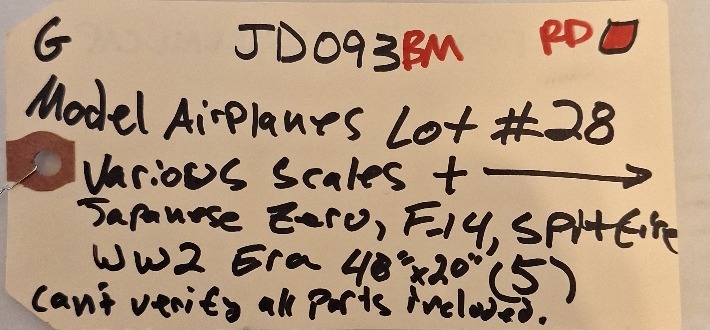 G JD093BM RD
Model Airplanes Lot #28
Various Scales + →
Japanese Zero, F-14, Spitfire
WW2 Era 48"x20" (5)
Can't verify all parts included.